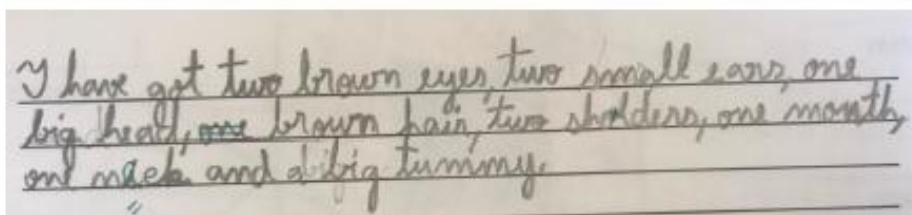 I have got two brown eyes, two small ears, one
big head, one brown hair, two sholders, one month,
one neck and a big tummy.